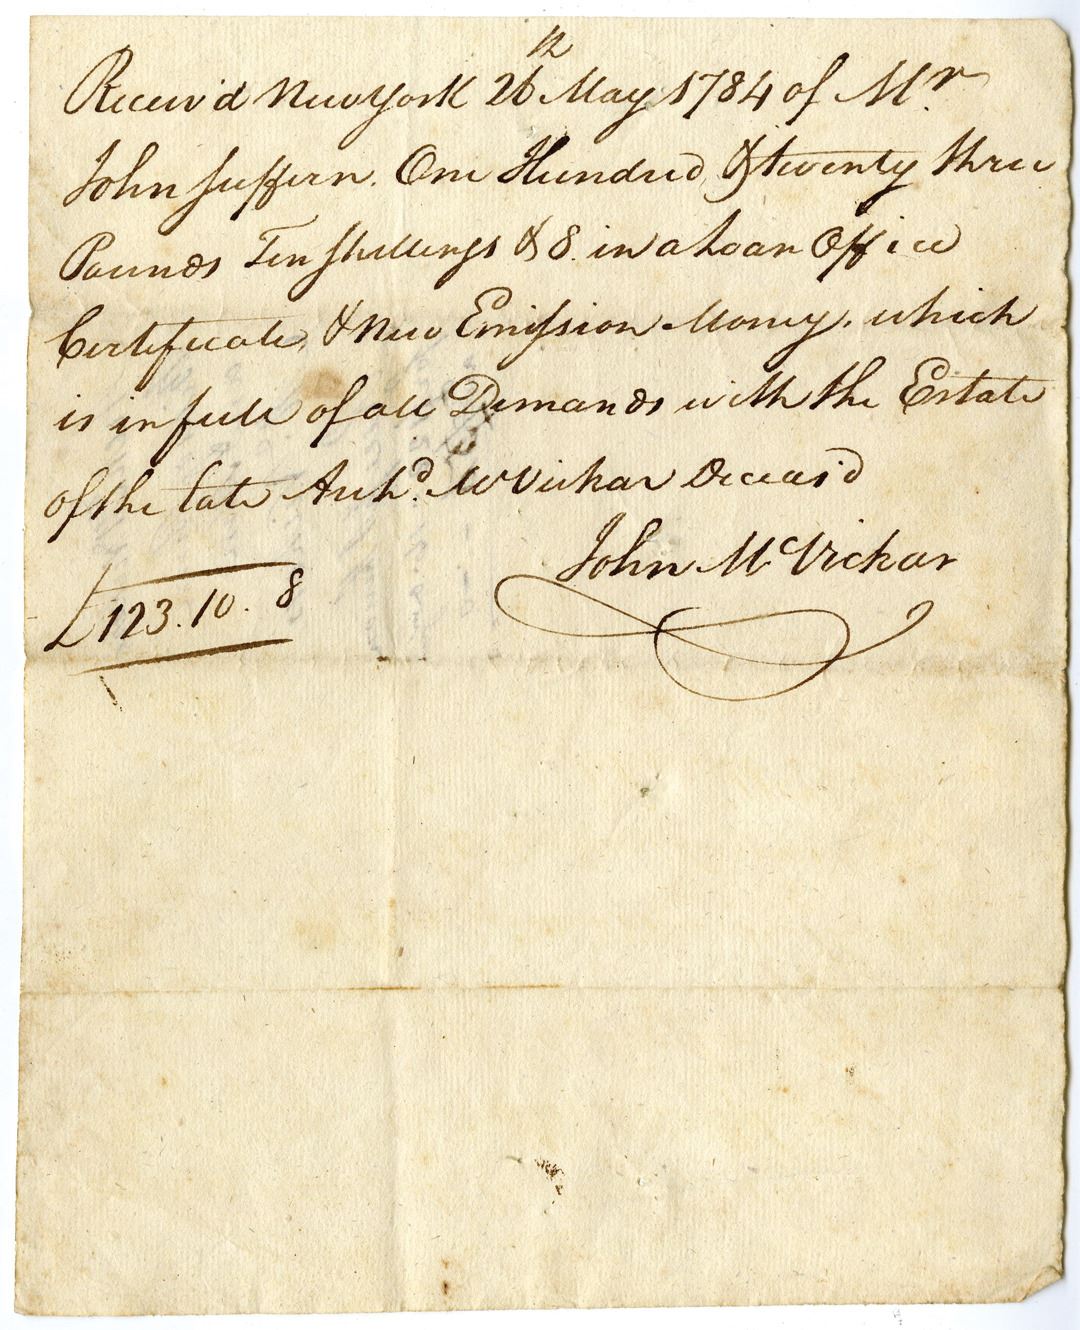 Receiv'd New York 26 May 1784 of Mr
John Suffern. One Hundred & twenty three
Pounds Ten Shillings & 8 in a Loan Office
Certificate, & New Emission Money. which
is in full of all Demands with the Estate
of the late Archd. McVickar Deceas'd
John McVickar
£123.10.8